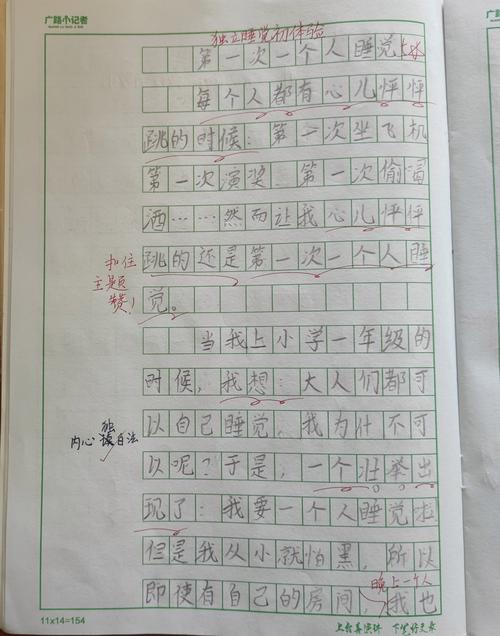 广路小记者
独立睡觉初体验
第一次一个人睡觉
每个人都有心儿怦怦
跳的时候：第一次坐飞机
第一次演奖、第一次偷喝
酒……然而让我心儿怦怦
跳的还是第一次一个人睡
扣住
主题
赞！
觉。
当我上小学一年级的
时候，我想：大人们都可
以自己睡觉，我为什不可
独
内心 白法
以呢？于是，一个壮举出
现了：我要一个人睡觉啦
但是我从小就怕黑，所以
晚上一个人
即使有自己的房间，我也
11x14=154